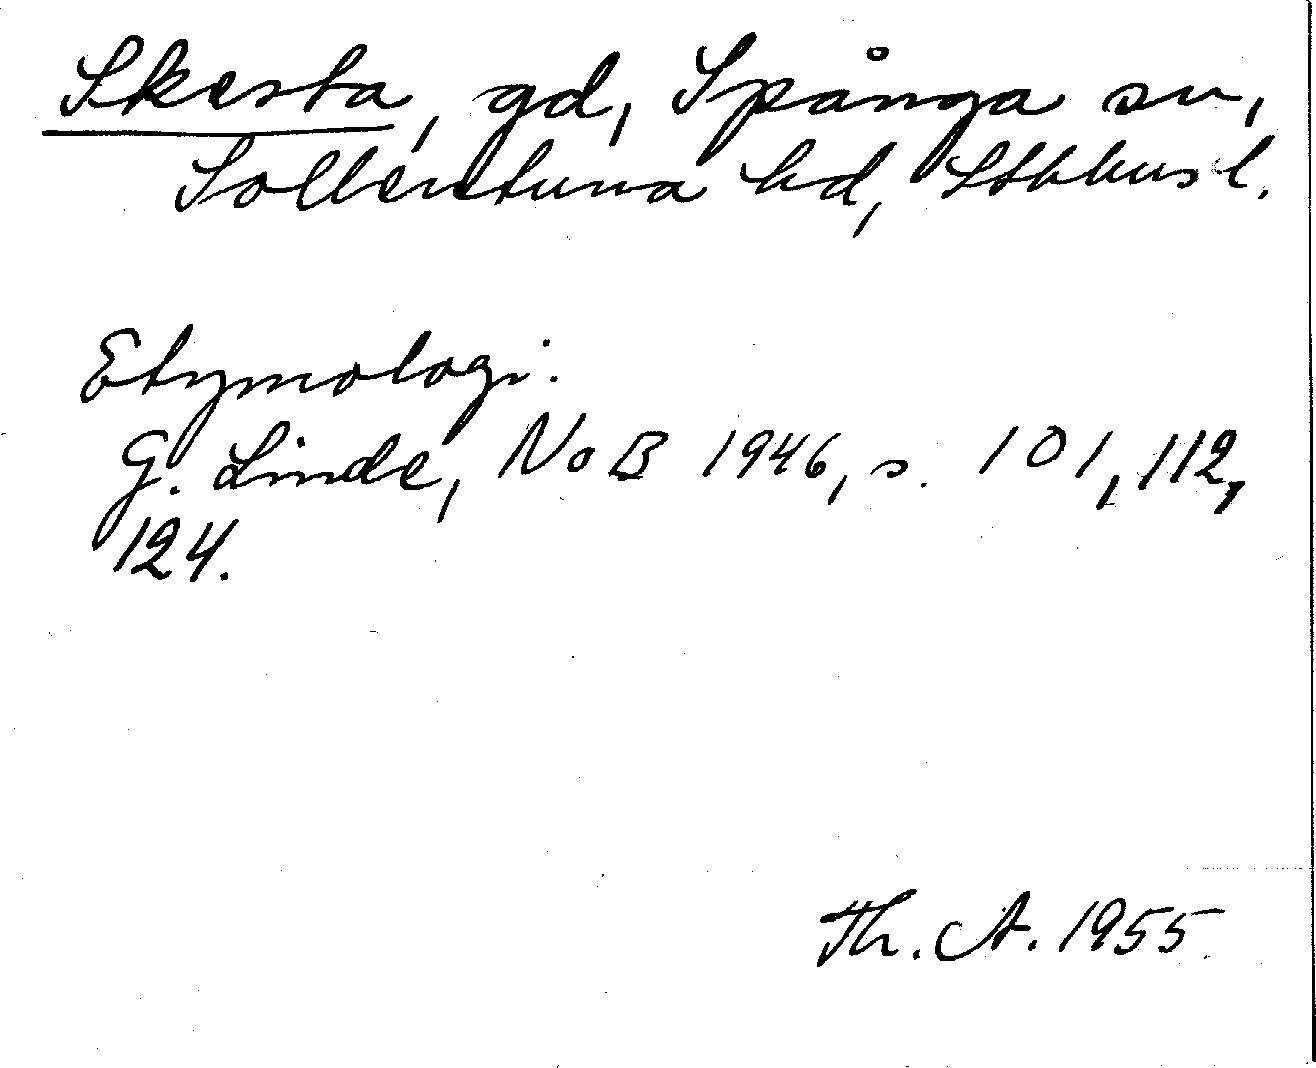 Skesta, gd, Spånga sn,
Sollentuna hd, Sthhusl.
Etymologi:
G. Linde, NoB 1946, s. 101, 112,
124.
Th. A. 1955.